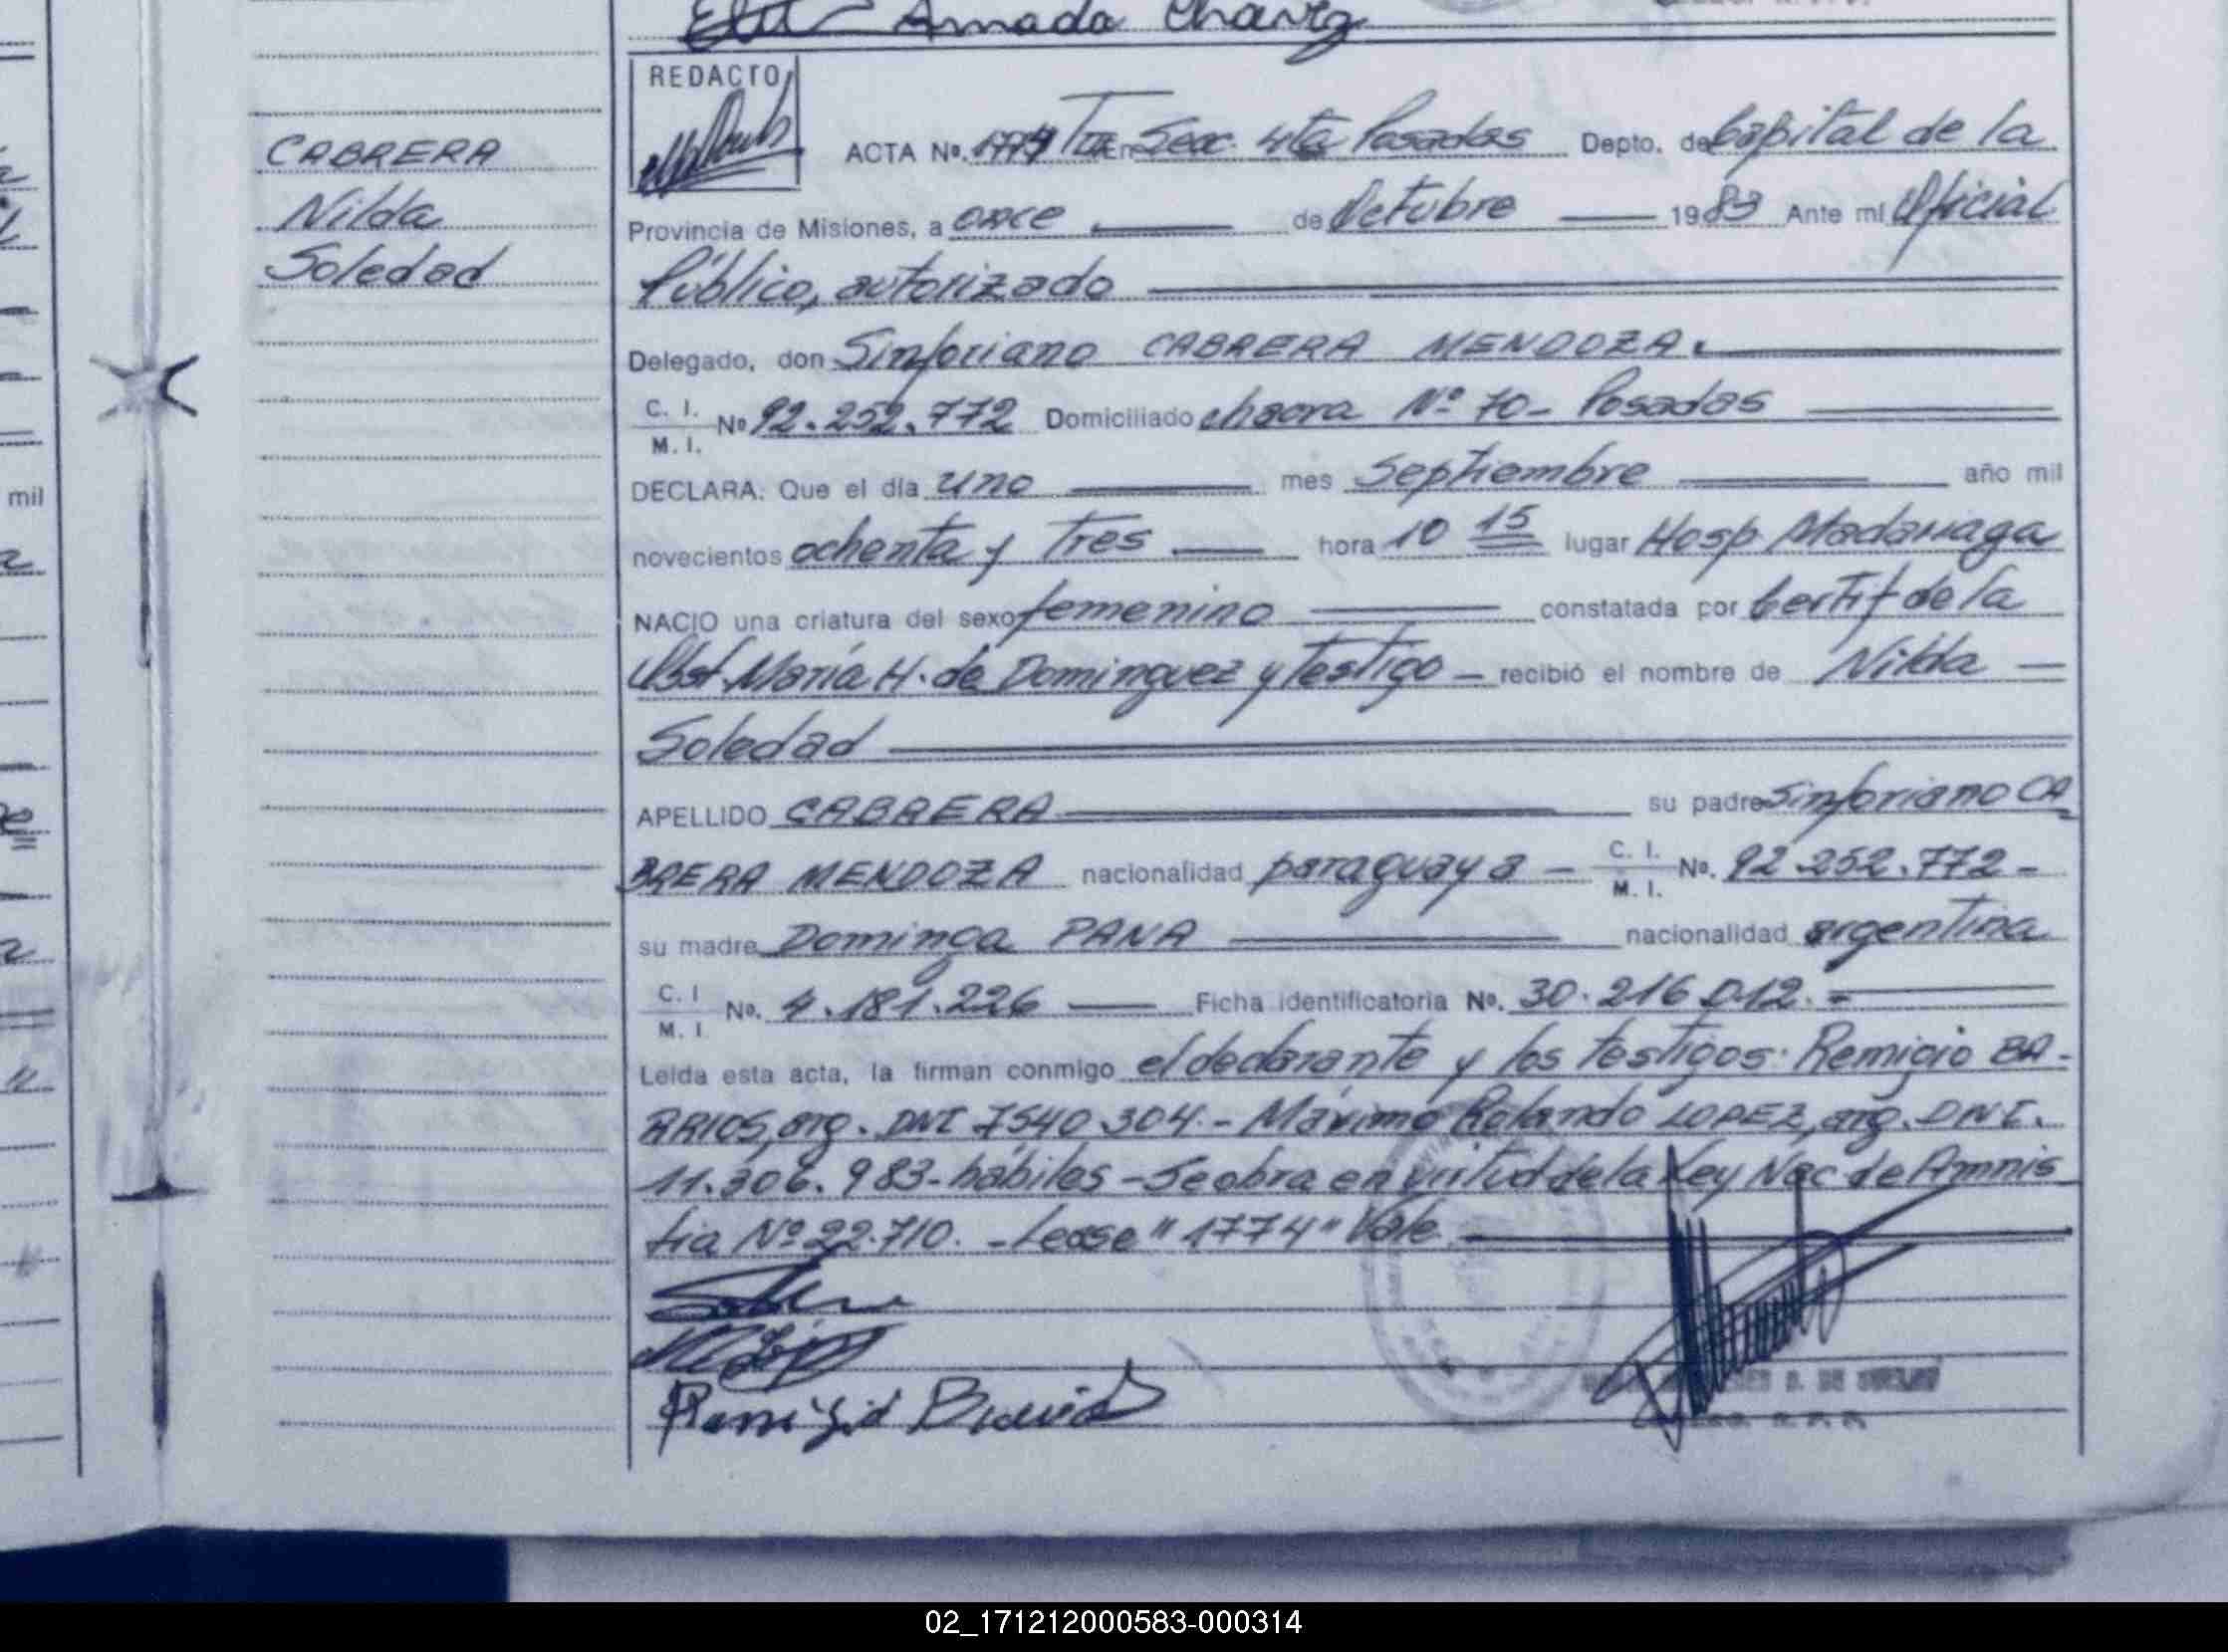 Amada Chavez
REDACTO
CABRERA
Nilda
Soledad
ACTA Nº. Tº En Secc. 4ta Posadas Depto. de Capital de la
Provincia de Misiones, a once de Octubre 1983 Ante mí Oficial
Público, autorizado
Delegado, don Sinforiano CABRERA MENDOZA.
C. I.
M. I. Nº 92.252.772 Domiciliado chacra Nº 70- Posadas
DECLARA: Que el día uno mes Septiembre año mil
novecientos ochenta y Tres hora 10 15 lugar Hosp Madariaga
NACIO una criatura del sexo femenino constatada por Certif de la
Obst. María H. de Dominguez y Testigo - recibió el nombre de Nilda
Soledad
APELLIDO CABRERA su padre Sinforiano CA
BRERA MENDOZA nacionalidad paraguaya - C. I.
M. I. Nº. 92.252.772-
su madre Dominga PANA nacionalidad argentina
C. I
M. I. Nº. 4.181.226 Ficha identificatoria Nº. 30.216.012.-
Leída esta acta, la firman conmigo el declarante y los Testigos: Remigio BA-
RRIOS, arg. DNI 7540.304.- Máximo Rolando LOPEZ, arg. DNI.
11.306.983-hábiles-Se obra en virtud de la Ley Nac de Amnis
tia Nº 22.710. -Lease "1774" Vale
Remigio Barrios
mil
02_171212000583-000314